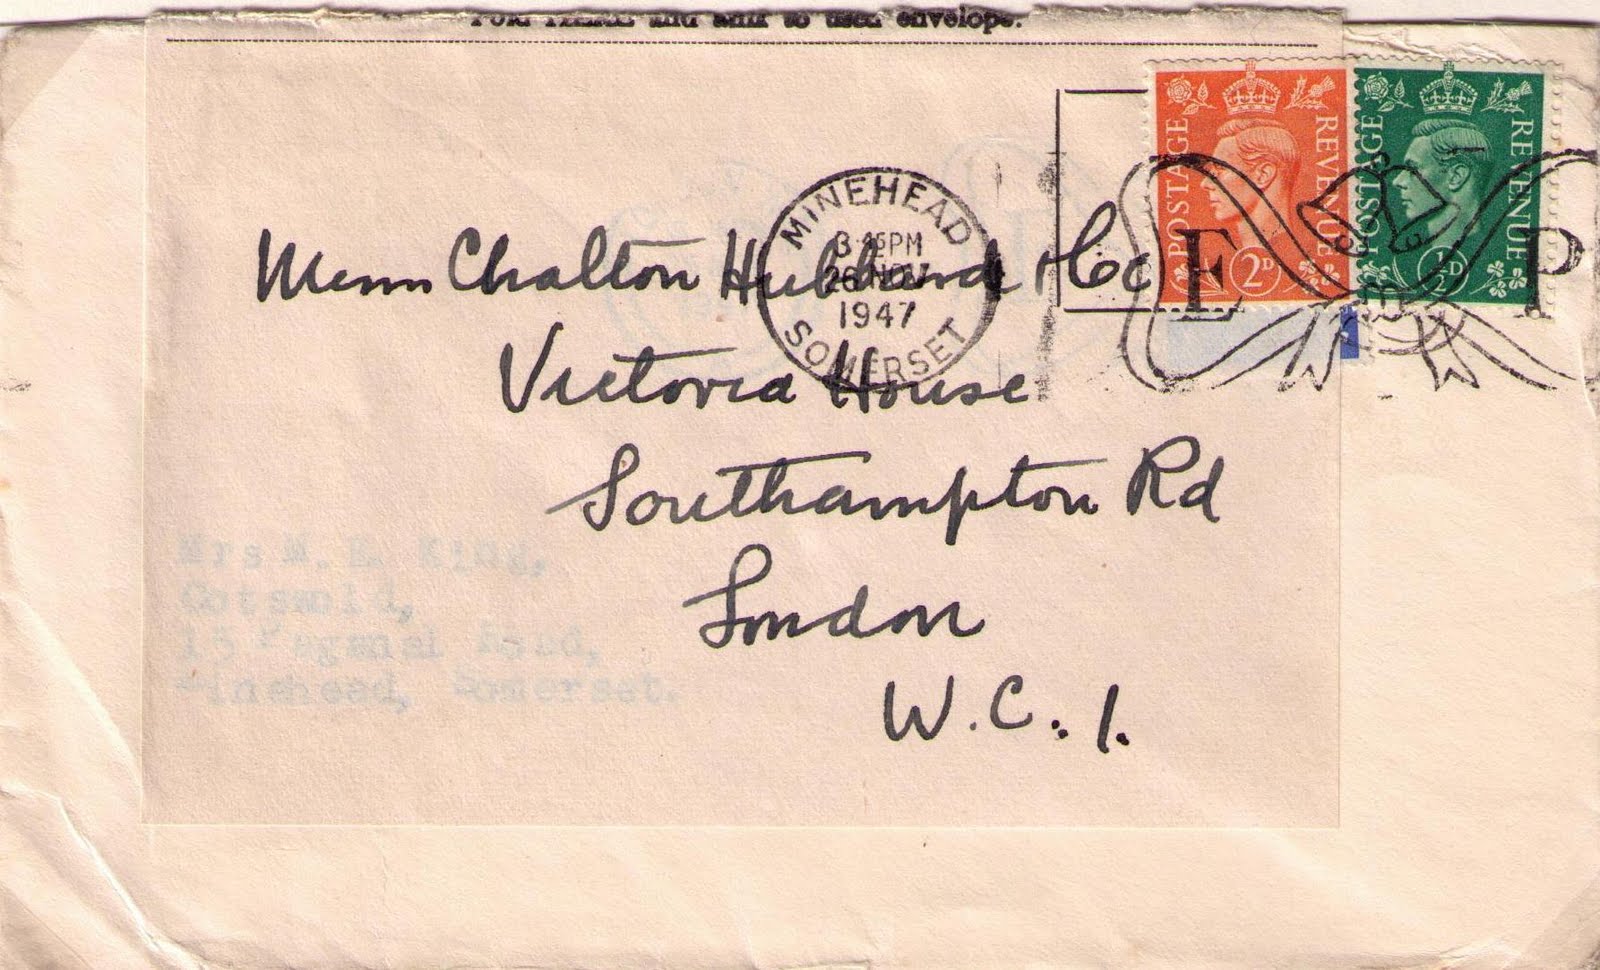 Fold HERE and affix to used envelope.
POSTAGE REVENUE
2D
POSTAGE REVENUE
½D
E P
MINEHEAD
3 45 PM
26 NOV
1947
SOMERSET
Messrs Chalton Hubbard & Co
Victoria House
Southampton Rd
London
W.C.1.
Mrs M. E. King,
Cotswold,
15 Road,
Minehead, Somerset.